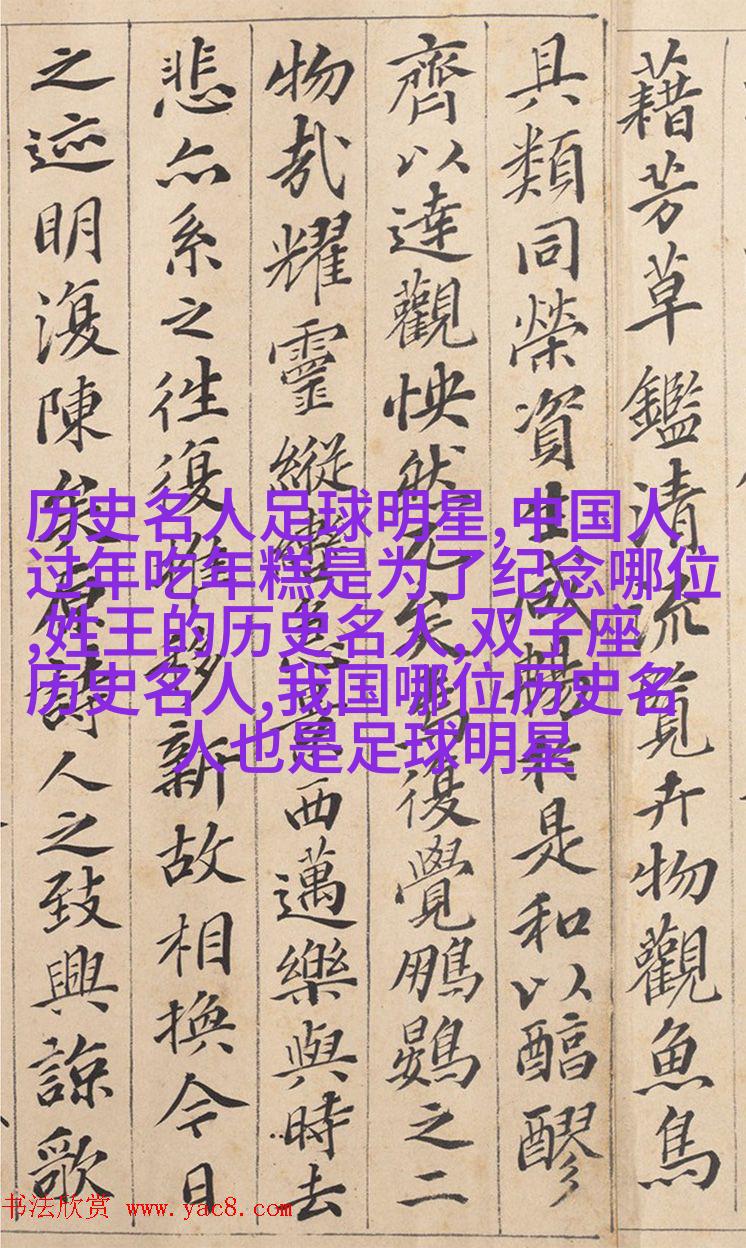 藉芳草鑑清流覽卉物觀魚鳥
具類同榮資生咸暢於是和以醇醪
齊以達觀怏然兀矣焉復覺鵬鷃之二
物哉耀靈縱轡急景西邁樂與時去
悲亦系之往復推移新故相換今日
之迹明復陳矣原詩人之致興諒歌
历史名人足球明星,中国人
过年吃年糕是为了纪念哪位
,姓王的历史名人,双子座
历史名人,我国哪位历史名
人也是足球明星
书法欣赏 www.yac8.com